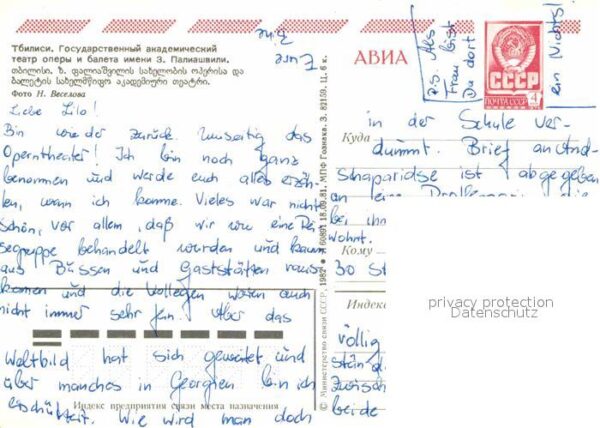 Тбилиси. Государственный академический
театр оперы и балета имени З. Палиашвили.
თბილისი. ზ. ფალიაშვილის სახელობის ოპერისა და
ბალეტის სახელმწიფო აკადემიური თეატრი.
Фото Н. Веселова
АВИА
СССР
ПОЧТА СССР
4
Eure
P.S. Als
Frau bist
Du dort
ein Nichts!
Liebe Lilo!
Bin wieder zurück. Umseitig das
Operntheater! Ich bin noch ganz
benommen und werde euch alles erzäh-
len, wenn ich komme. Vieles war nicht
schön, vor allem, daß wir wie eine Rei-
segruppe behandelt wurden und kaum
aus Bussen und Gaststätten raus-
kamen und die Kollegen waren auch
nicht immer sehr fein. Aber das
Weltbild hat sich geweitet und
über manches in Georgien bin ich
erschüttert. Wie wird man doch
in der Schule ver-
Куда
dummt. Brief an And-
schaparidse ist abgegeben
an eine
bei ihm
wohnt.
Кому
30 St
Индекс
völlig
stän
zwisch
beide
Индекс предприятия связи места назначения
© Министерство связи СССР. 1982 ● А 60891 18.09.81. МПФ Гознака. З. 82159. Ц. 6 к.
privacy protection
Datenschutz